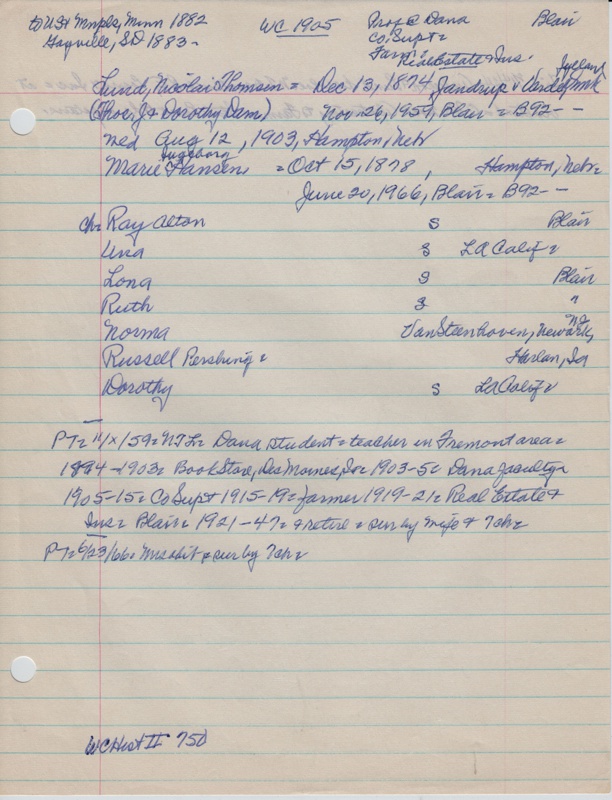 to US = Mnpls, Minn 1882 WC 1905 Prof @ Dana Blair
Gayville, SD 1883 - Co Supt =
Farm =
Real Estate & Ins.
Jylland
Lund, Nicolai Thomsen = Dec 13, 1874 Jandrup v Varde, Dnmk
(Thos J & Dorothy Dam) Nov 26, 1959, Blair = B92 - -
med Aug 12, 1903, Hampton, Nebr
Ingeborg
Marie Hansen = Oct 15, 1878, Hampton, Nebr =
June 20, 1966, Blair = B92 - -
ch = Ray Alton S Blair
Una S LA Calif =
Lona S Blair
Ruth S "
NJ
Norma VanSteenhoven, Newark,
Russell Pershing = Harlan, Ia
Dorothy S LA Calif =
PT = 11/ x /59 = NTL = Dana student = teacher in Fremont area =
1894 - 1903 = Book Store, Des Moines, Ia = 1903 - 5 = Dana faculty =
1905 - 15 = Co Supt 1915 - 19 = farmer 1919 - 21 = Real Estate &
Ins = Blair = 1921 - 47 = & retire = sur by wife & 7 ch =
PT = 6/23/66 = Mrs obit = sur by 7 ch =
WC Hist II 750